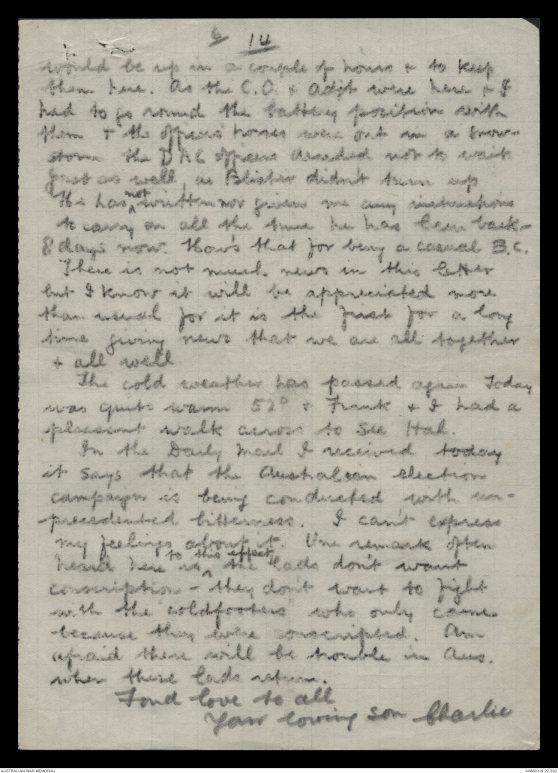 6 14
would be up in a couple of hours & to keep
them here. As the C.O. & adjt were here & I
had to go round the battery position with
them & the officers horses were out in a snow-
storm the DAC officers decided not to wait
Just as well, as Blisher didn't turn up
He has not written nor given me any instructions
to carry on all the time he has been back -
8 days now. How's that for being a casual B.C.
There is not much news in this letter
but I know it will be appreciated more
than usual for it is the first for a long
time giving news that we are all together
& all well
The cold weather has passed again Today
was quite warm 52° & Frank & I had a
pleasant walk across to see Hal.
In the Daily Mail I received today
it says that the Australian election
campaign is being conducted with un-
precedented bitterness. I can't express
my feelings about it. One remark often
heard here is to this effect the lads don't want
conscription - they don't want to fight
with the coldfooters who only came
because they were conscripted. Am
afraid there will be trouble in Aus.
when these lads return.
Fond love to all
Your loving son Charlie
AUSTRALIAN WAR MEMORIAL